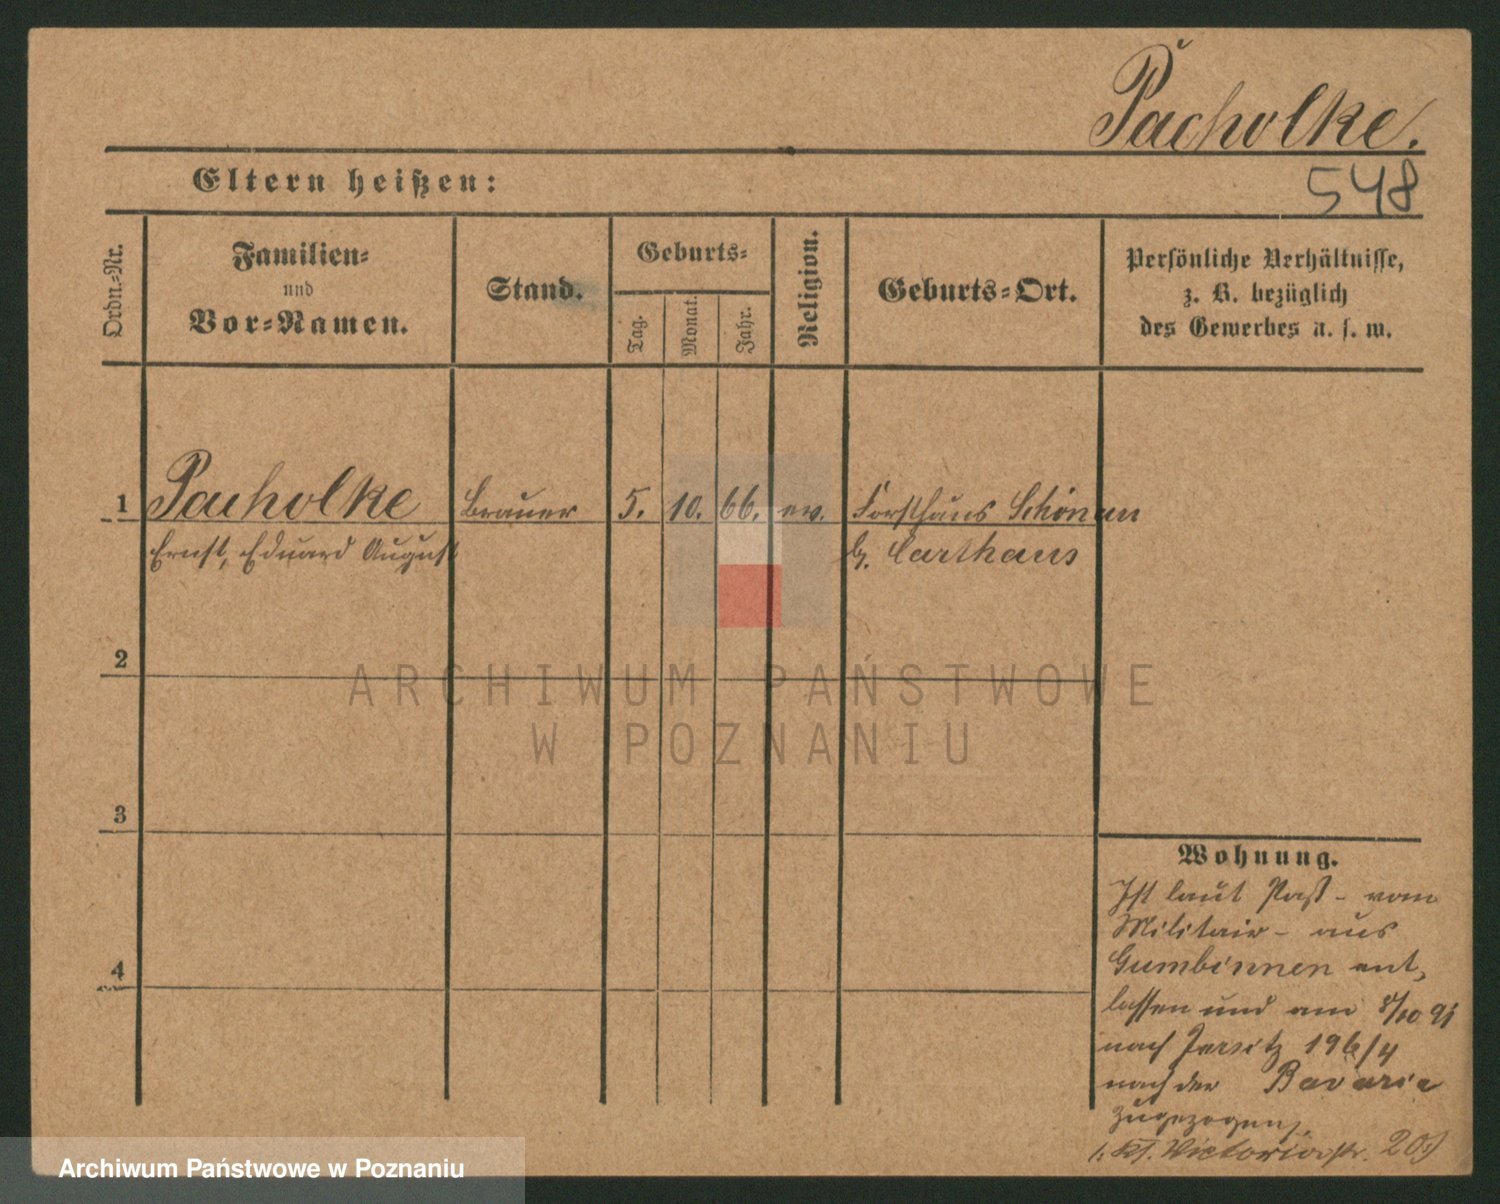 Pacholke.
548
Eltern heißen:
Ordn.-Nr.
Familien-
und
Vor-Namen.
Stand.
Geburts-
Tag.
Monat.
Jahr.
Religion.
Geburts-Ort.
Persönliche Verhältnisse,
z. B. bezüglich
des Gewerbes u. s. w.
1 Pacholke Brauer 5. 10. 66. ev. Forsthaus Schönau
Ernst, Eduard August b. Carthaus
2
ARCHIWUM PAŃSTWOWE
W POZNANIU
3
4
Wohnung.
Ist laut Paß - vom
Militair - aus
Gumbinnen ent,
lassen und am 8/10 91
nach Jersitz 196/4
nach der Bavaria
zugezogen.
Victoriastr. 20
Archiwum Państwowe w Poznaniu